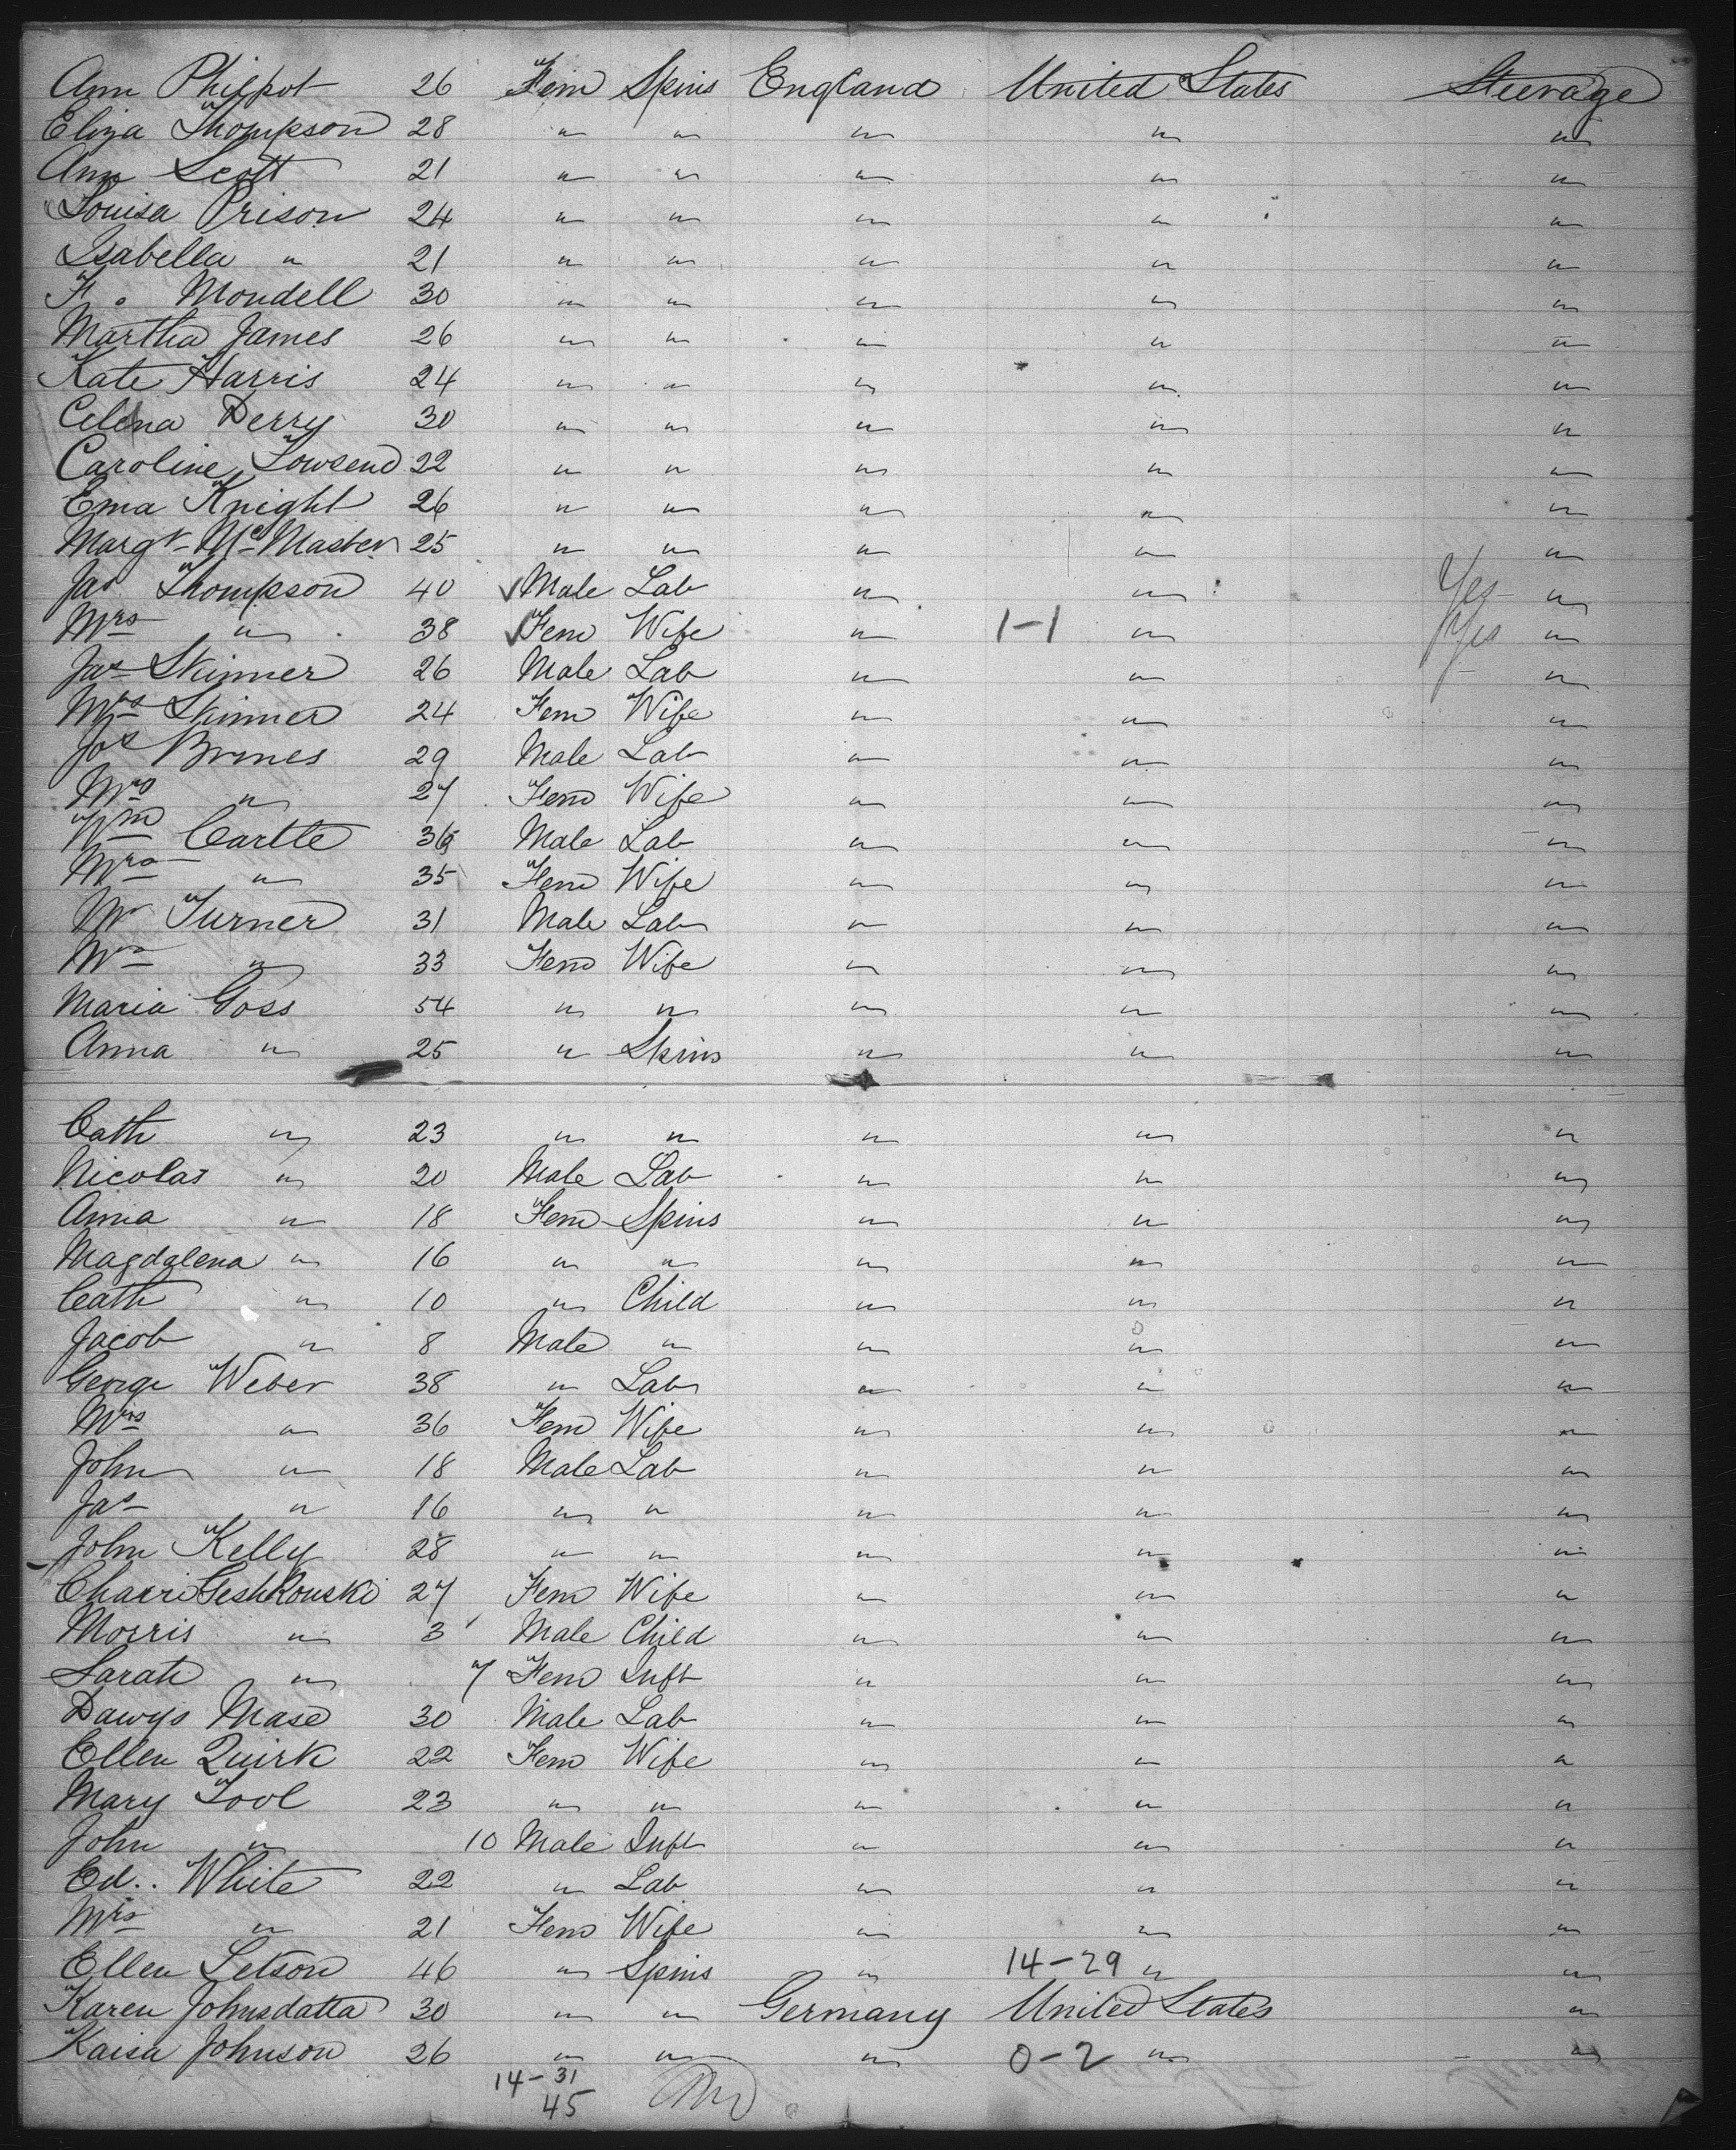 Ann Philpot 26 Fem Spins England United States Steerage
Eliza Thompson 28 " " " " "
Ann Scott 21 " " " " "
Louisa Prison 24 " " " " "
Isabella " 21 " " " " "
F. Mondell 30 " " " " "
Martha James 26 " " " " "
Kate Harris 24 " " " " "
Celena Derry 30 " " " " "
Caroline Towsend 22 " " " " "
Ema Knight 26 " " " " "
Margt McMaster 25 " " " " "
Jas Thompson 40 ✓ Male Lab " " Yes "
Mrs " 38 ✓ Fem Wife " 1-1 " Yes "
Jas Skinner 26 Male Lab " " "
Mrs Skinner 24 Fem Wife " " "
Jos 29 Male Lab " " "
Mrs " 27 Fem Wife " " "
Wm Cartte 36 Male Lab " " "
Mrs " 35 Fem Wife " " "
Turner 31 Male Lab " " "
Mrs " 33 Fem Wife " " "
Maria Goss 54 " " " " "
Anna " 25 " Spins " " "
Cath " 23 " " " " "
Nicolas " 20 Male Lab " " "
Anna " 18 Fem Spins " " "
Magdalena " 16 " " " " "
Cath " 10 " Child " " "
Jacob " 8 Male " " " "
George Weber 38 " Lab " " "
Mrs " 36 Fem Wife " " "
John " 18 Male Lab " " "
Jas " 16 " " " " "
John Kelly 28 " " " " "
27 Fem Wife " " "
Morris " 3 Male Child " " "
Sarah " 7 Fem Inft " " "
Dawys Mase 30 Male Lab " " "
Ellen Quirk 22 Fem Wife " " "
Mary Tool 23 " " " " "
John " 10 Male Inft " " "
Ed.. White 22 " Lab " " "
Mrs " 21 Fem Wife " " "
Ellen Letson 46 " Spins " 14-29 " "
Karen Johnsdatta 30 " " Germany United States "
Kaisa Johnson 26 " " " 0-2 " "
14-31
45